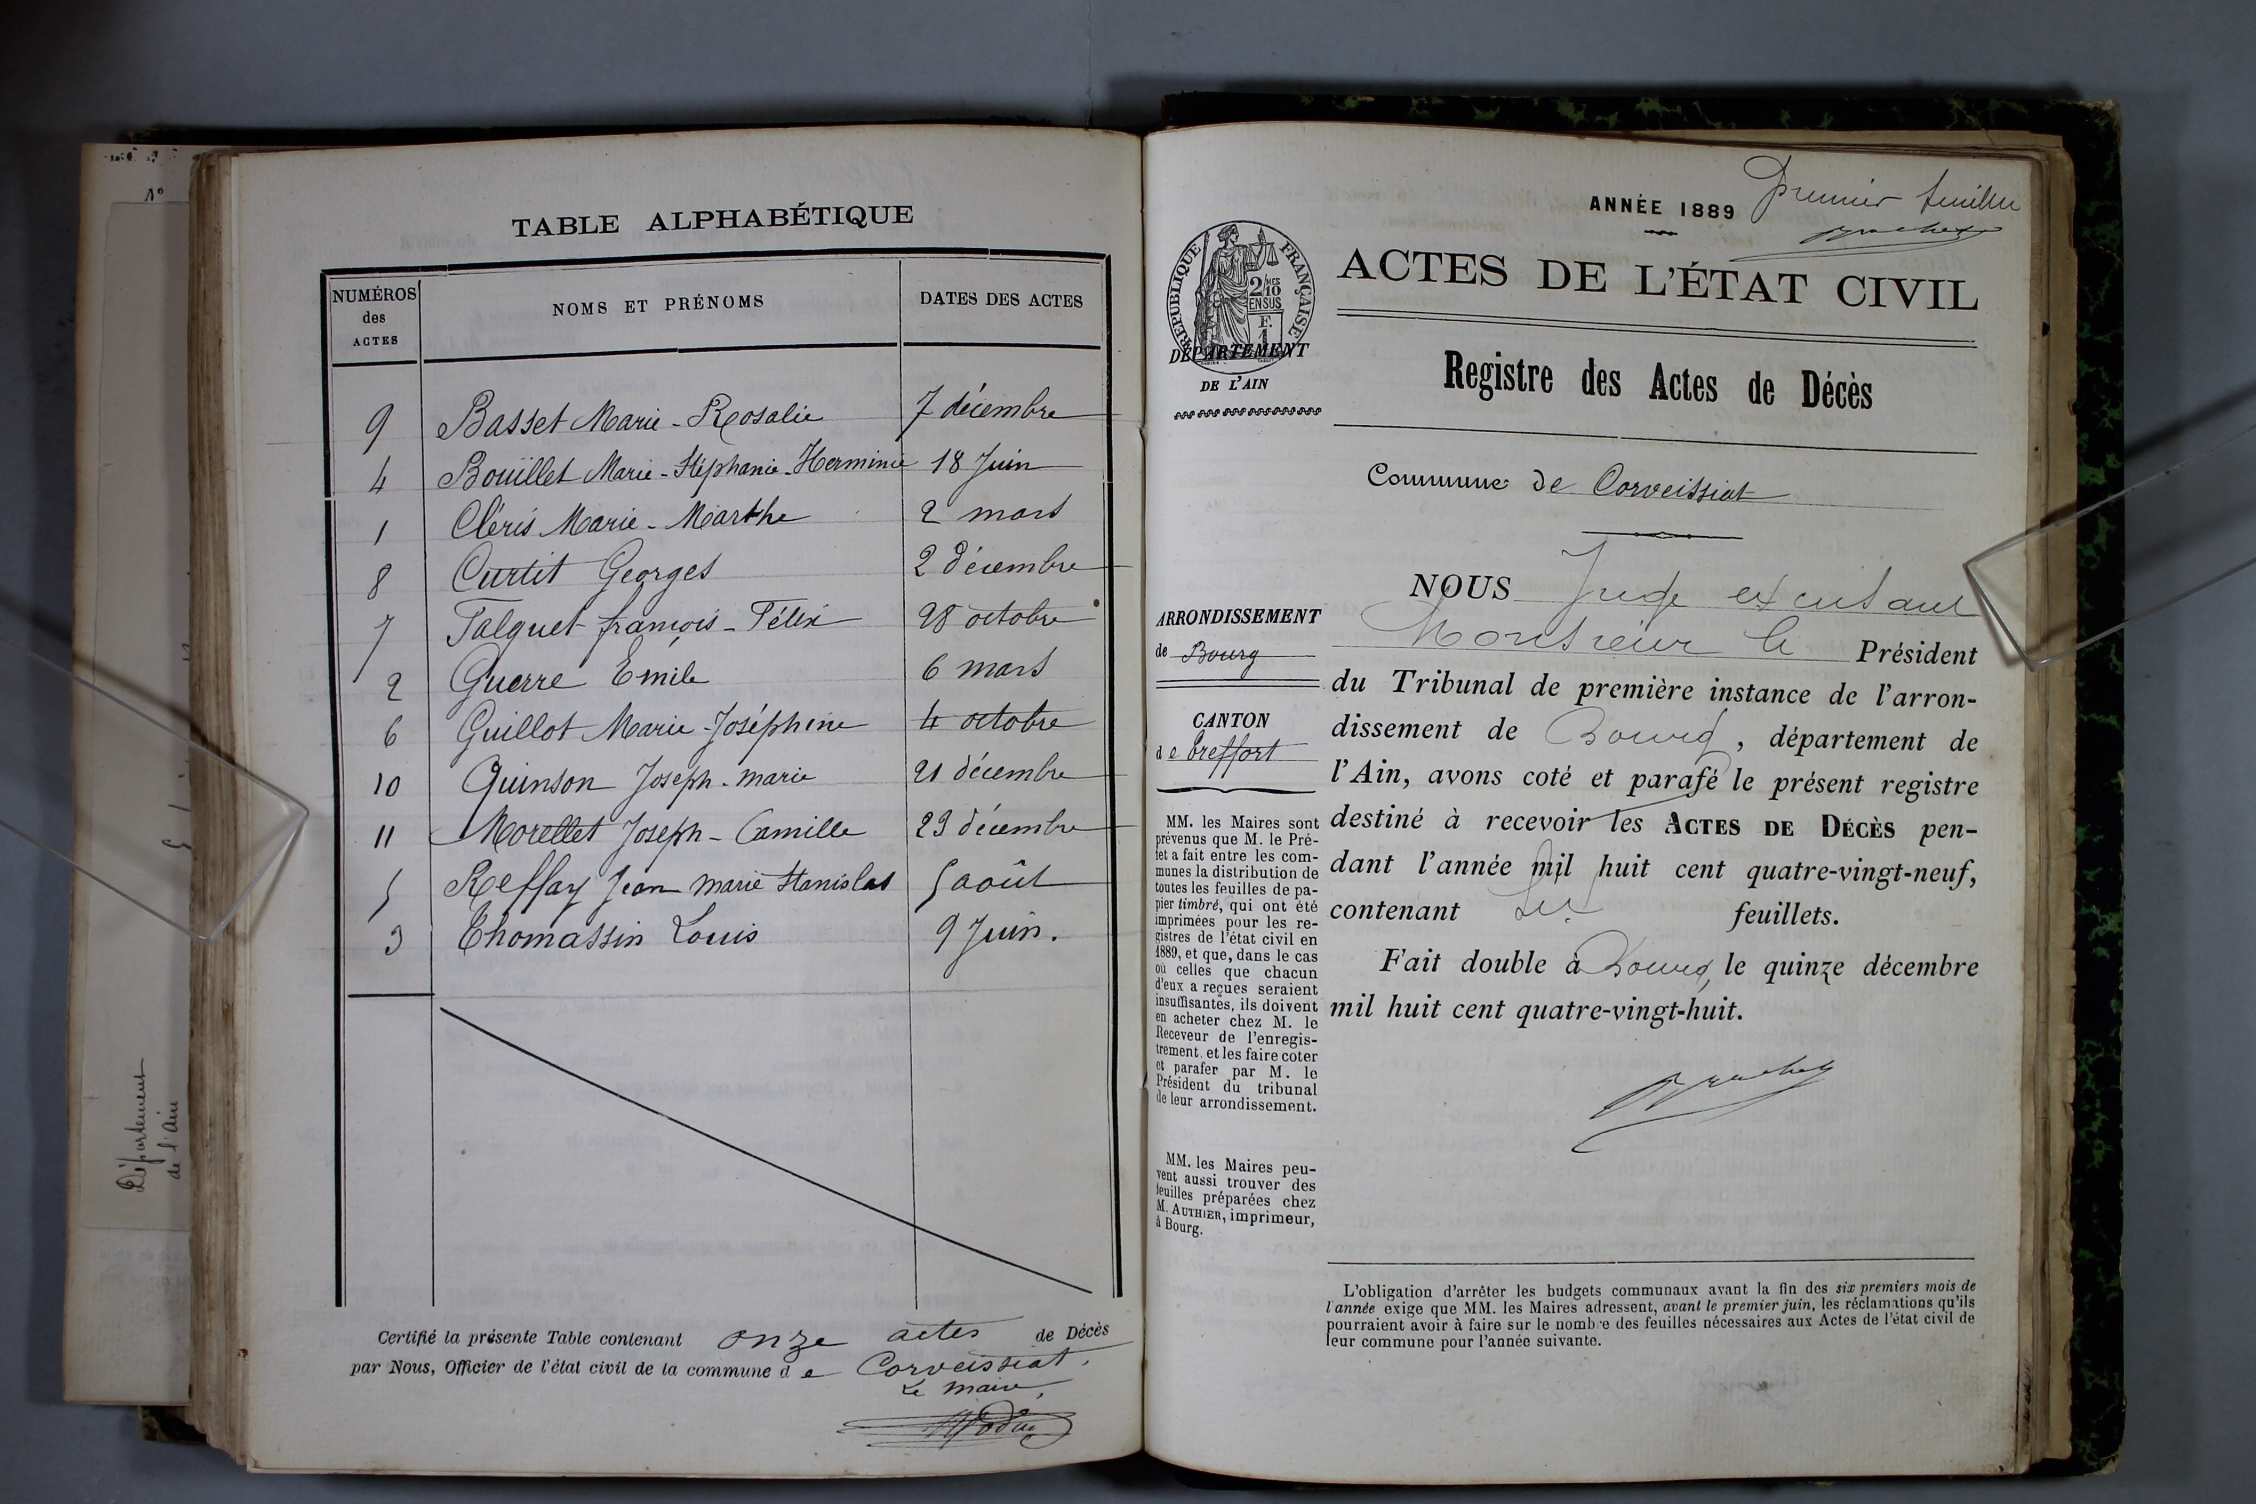 TABLE ALPHABÉTIQUE
NUMÉROS des ACTES NOMS ET PRÉNOMS DATES DES ACTES
9 Basset Marie-Rosalie 7 décembre
4 Bouillet Marie-Stéphanie-Herminie 18 Juin
1 Cléris Marie-Marthe 2 mars
8 Curtit Georges 2 décembre
7 Falquet françois-Félix 28 octobre
2 Guerre Emile 6 mars
6 Guillot Marie-Joséphine 4 octobre
10 Quinson Joseph-marie 21 décembre
11 Morellet Joseph-Camille 29 décembre
5 Reffay Jean marie Stanislas 5 août
3 Thomassin Louis 9 Juin.
Certifié la présente Table contenant onze actes de Décès
par Nous, Officier de l'état civil de la commune de Corveissiat.
Le Maire,
N°
Département
de l'Ain
ANNÉE 1889 Premier feuillet
ACTES DE L'ÉTAT CIVIL
RÉPUBLIQUE FRANÇAISE
2/10 MES
EN SUS
F.
1
DÉPARTEMENT
DE L'AIN
Registre des Actes de Décès
Commune de Corveissiat
ARRONDISSEMENT
de Bourg
CANTON
de Treffort
MM. les Maires sont
prévenus que M. le Pré-
fet a fait entre les com-
munes la distribution de
toutes les feuilles de pa-
pier timbré, qui ont été
imprimées pour les re-
gistres de l'état civil en
1889, et que, dans le cas
où celles que chacun
d'eux a reçues seraient
insuffisantes, ils doivent
en acheter chez M. le
Receveur de l'enregis-
trement, et les faire coter
et parafer par M. le
Président du tribunal
de leur arrondissement.
MM. les Maires peu-
vent aussi trouver des
feuilles préparées chez
M. AUTHIER, imprimeur,
à Bourg.
NOUS Juge
Monsieur le Président
du Tribunal de première instance de l'arron-
dissement de Bourg, département de
l'Ain, avons coté et parafé le présent registre
destiné à recevoir les ACTES DE DÉCÈS pen-
dant l'année mil huit cent quatre-vingt-neuf,
contenant feuillets.
Fait double à Bourg, le quinze décembre
mil huit cent quatre-vingt-huit.
L'obligation d'arrêter les budgets communaux avant la fin des six premiers mois de
l'année exige que MM. les Maires adressent, avant le premier juin, les réclamations qu'ils
pourraient avoir à faire sur le nombre des feuilles nécessaires aux Actes de l'état civil de
leur commune pour l'année suivante.